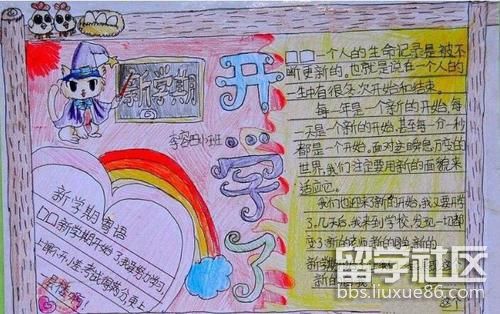 新学期
开学了
新学期寄语
新学期开始了我要努力学习
上课不开小差.考试得满分.更上
一个人的生命记录是被不
断更新的。也就是说在一个人的
一生有很多次开始和结束。
每一年是一个新的开始,每
一天是个新的开始,甚至每一分一秒
都是个开始。面对这瞬息万变的
世界,我们注定要用新的面貌来
适应它。
我们也迎来了新的开始,我又要开学
了.几天后,我来到学校,发现一切都
变了新的老师.新的同学.新的
新学期
留学社区
bbs.liuxue86.com